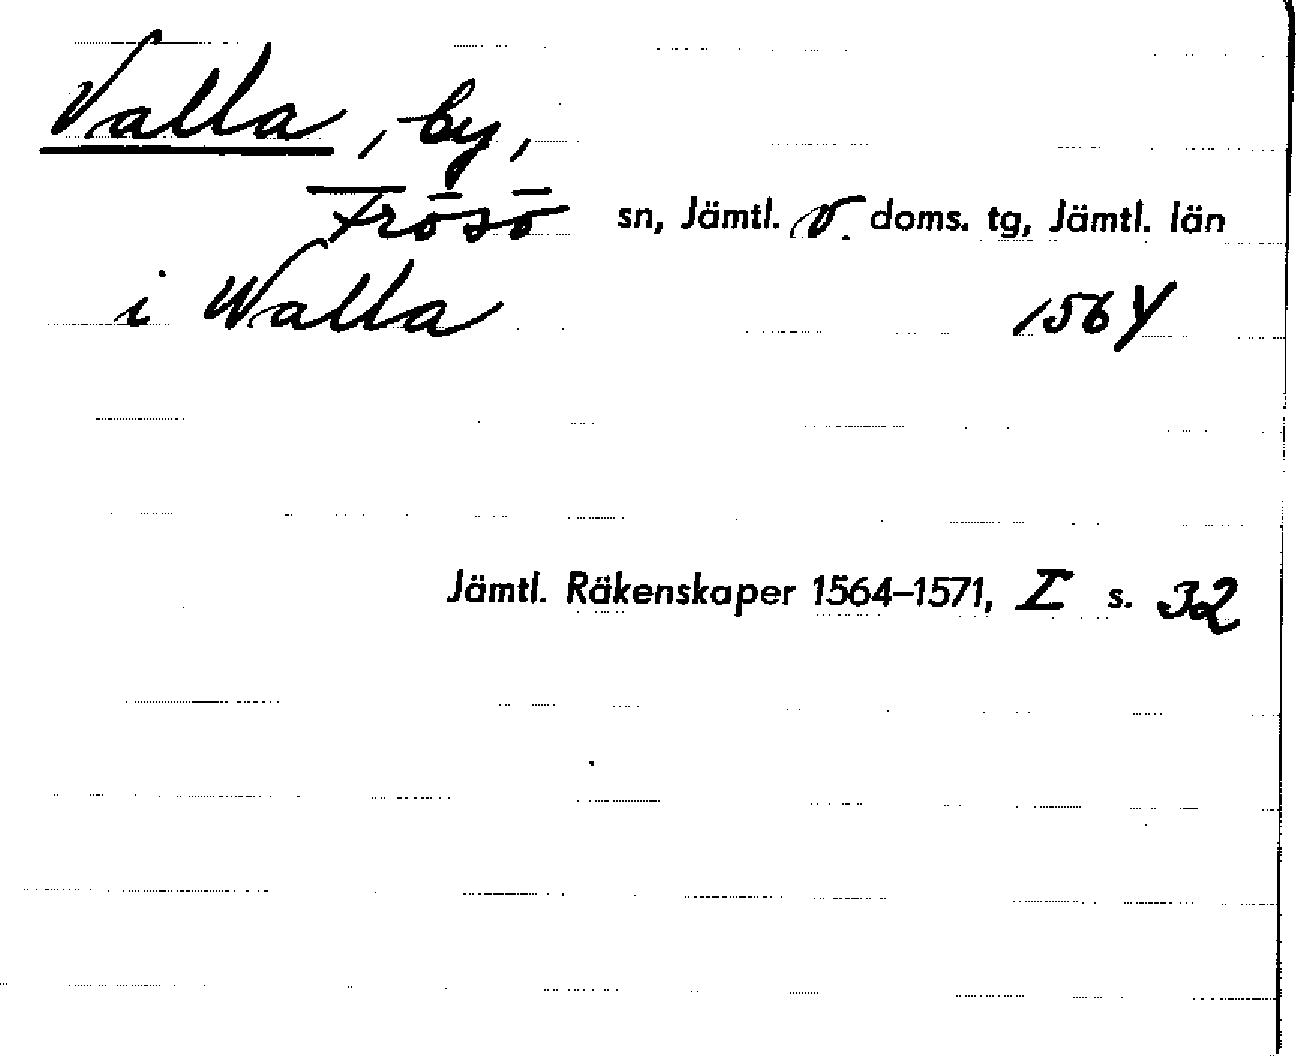 Valla, by,
Frösö sn, Jämtl. v. doms. tg, Jämtl. län
i Walla 1564
Jämtl. Räkenskaper 1564–1571, I s. 32